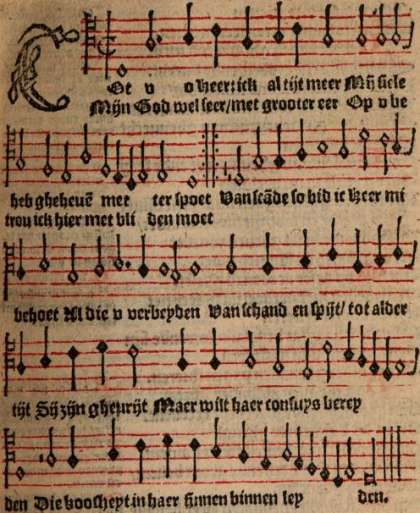 Ot v o heer ick al tijt meer Mijn siele
Mijn God wel seer/met grooter eer Op v be
heb gheheuẽ met ter spoet Van scãde so bid ic heer mi
trou ick hier met bli den moet
behoet Al die v verbeyden van schand en spijt/ tot alder
tijt Sij zijn ghevrijt Maer wilt haer confuys berey
den Die boosheyt in haer sinnen binnen ley den.